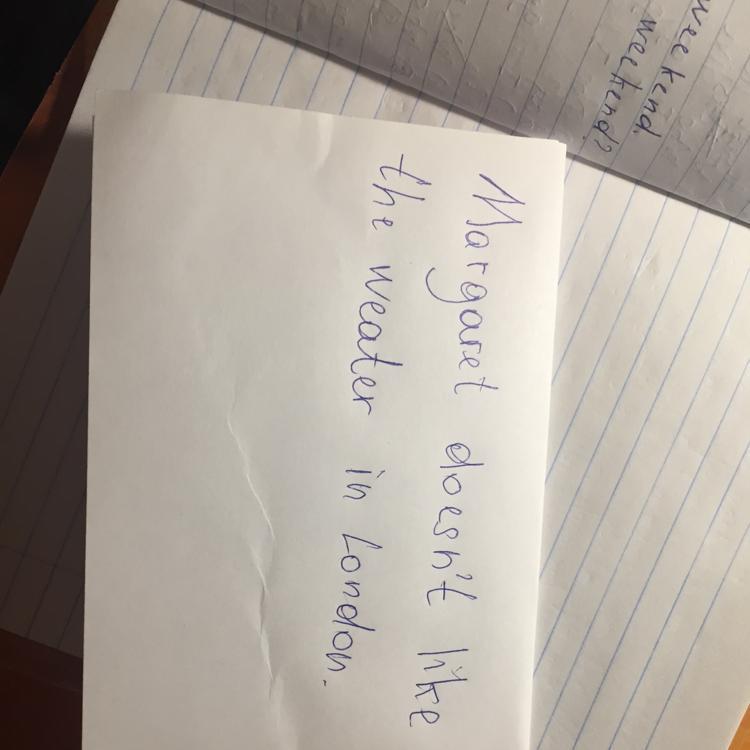 weekend.
weekend?
Margaret doesn't like
the weater in London.